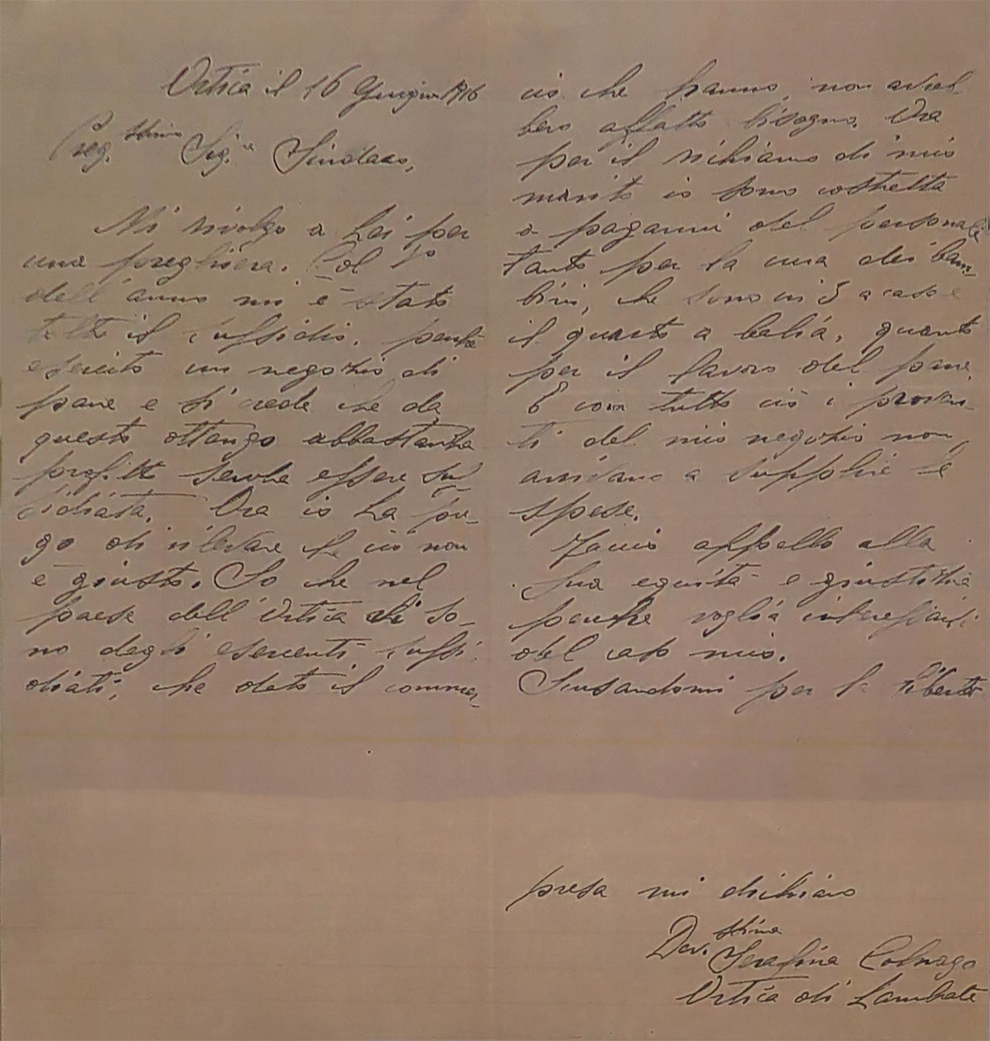 Ortica il 16 Giugno 1916
Preg.stimo Sig.r Sindaco,
Mi rivolgo a Lei per
una preghiera. Col 1º
dell'anno mi è stato
tolto il sussidio, perchè
esercito un negozio di
pane e si crede che da
questo ottengo abbastanza
profitto senza essere sus-
sidiata. Ora io La pre-
go di rilevare se ciò non
è giusto. So che nel
paese dell'Ortica vi so-
no degli esercenti sussi-
diati, che dato il commer-
cio che hanno, non avreb-
bero affatto bisogno. Ora
per il richiamo di mio
marito io sono costretta
a pagarmi del personale
tanto per la cura dei bam-
bini, che sono in 3 a casa e
il quarto a balia, quanto
per il lavoro del pane.
E con tutto ciò i proven-
ti del mio negozio non
arrivano a supplire le
spese.
Faccio appello alla
Sua equità e giustizia
perchè voglia interessarsi
del caso mio.
Scusandomi per la libertà
presa mi dichiaro
Dev.stima
Serafina Colnago
Ortica di Lambrate